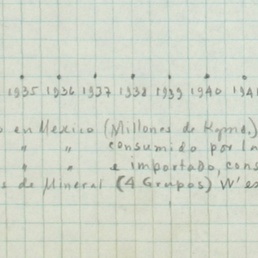 1935 1936 1937 1938 1939 1940 1941
o en Mexico (Millones de Kgms.)
" " consumido por la
" " e importado, cons
s de Mineral (4 Grupos) W'es